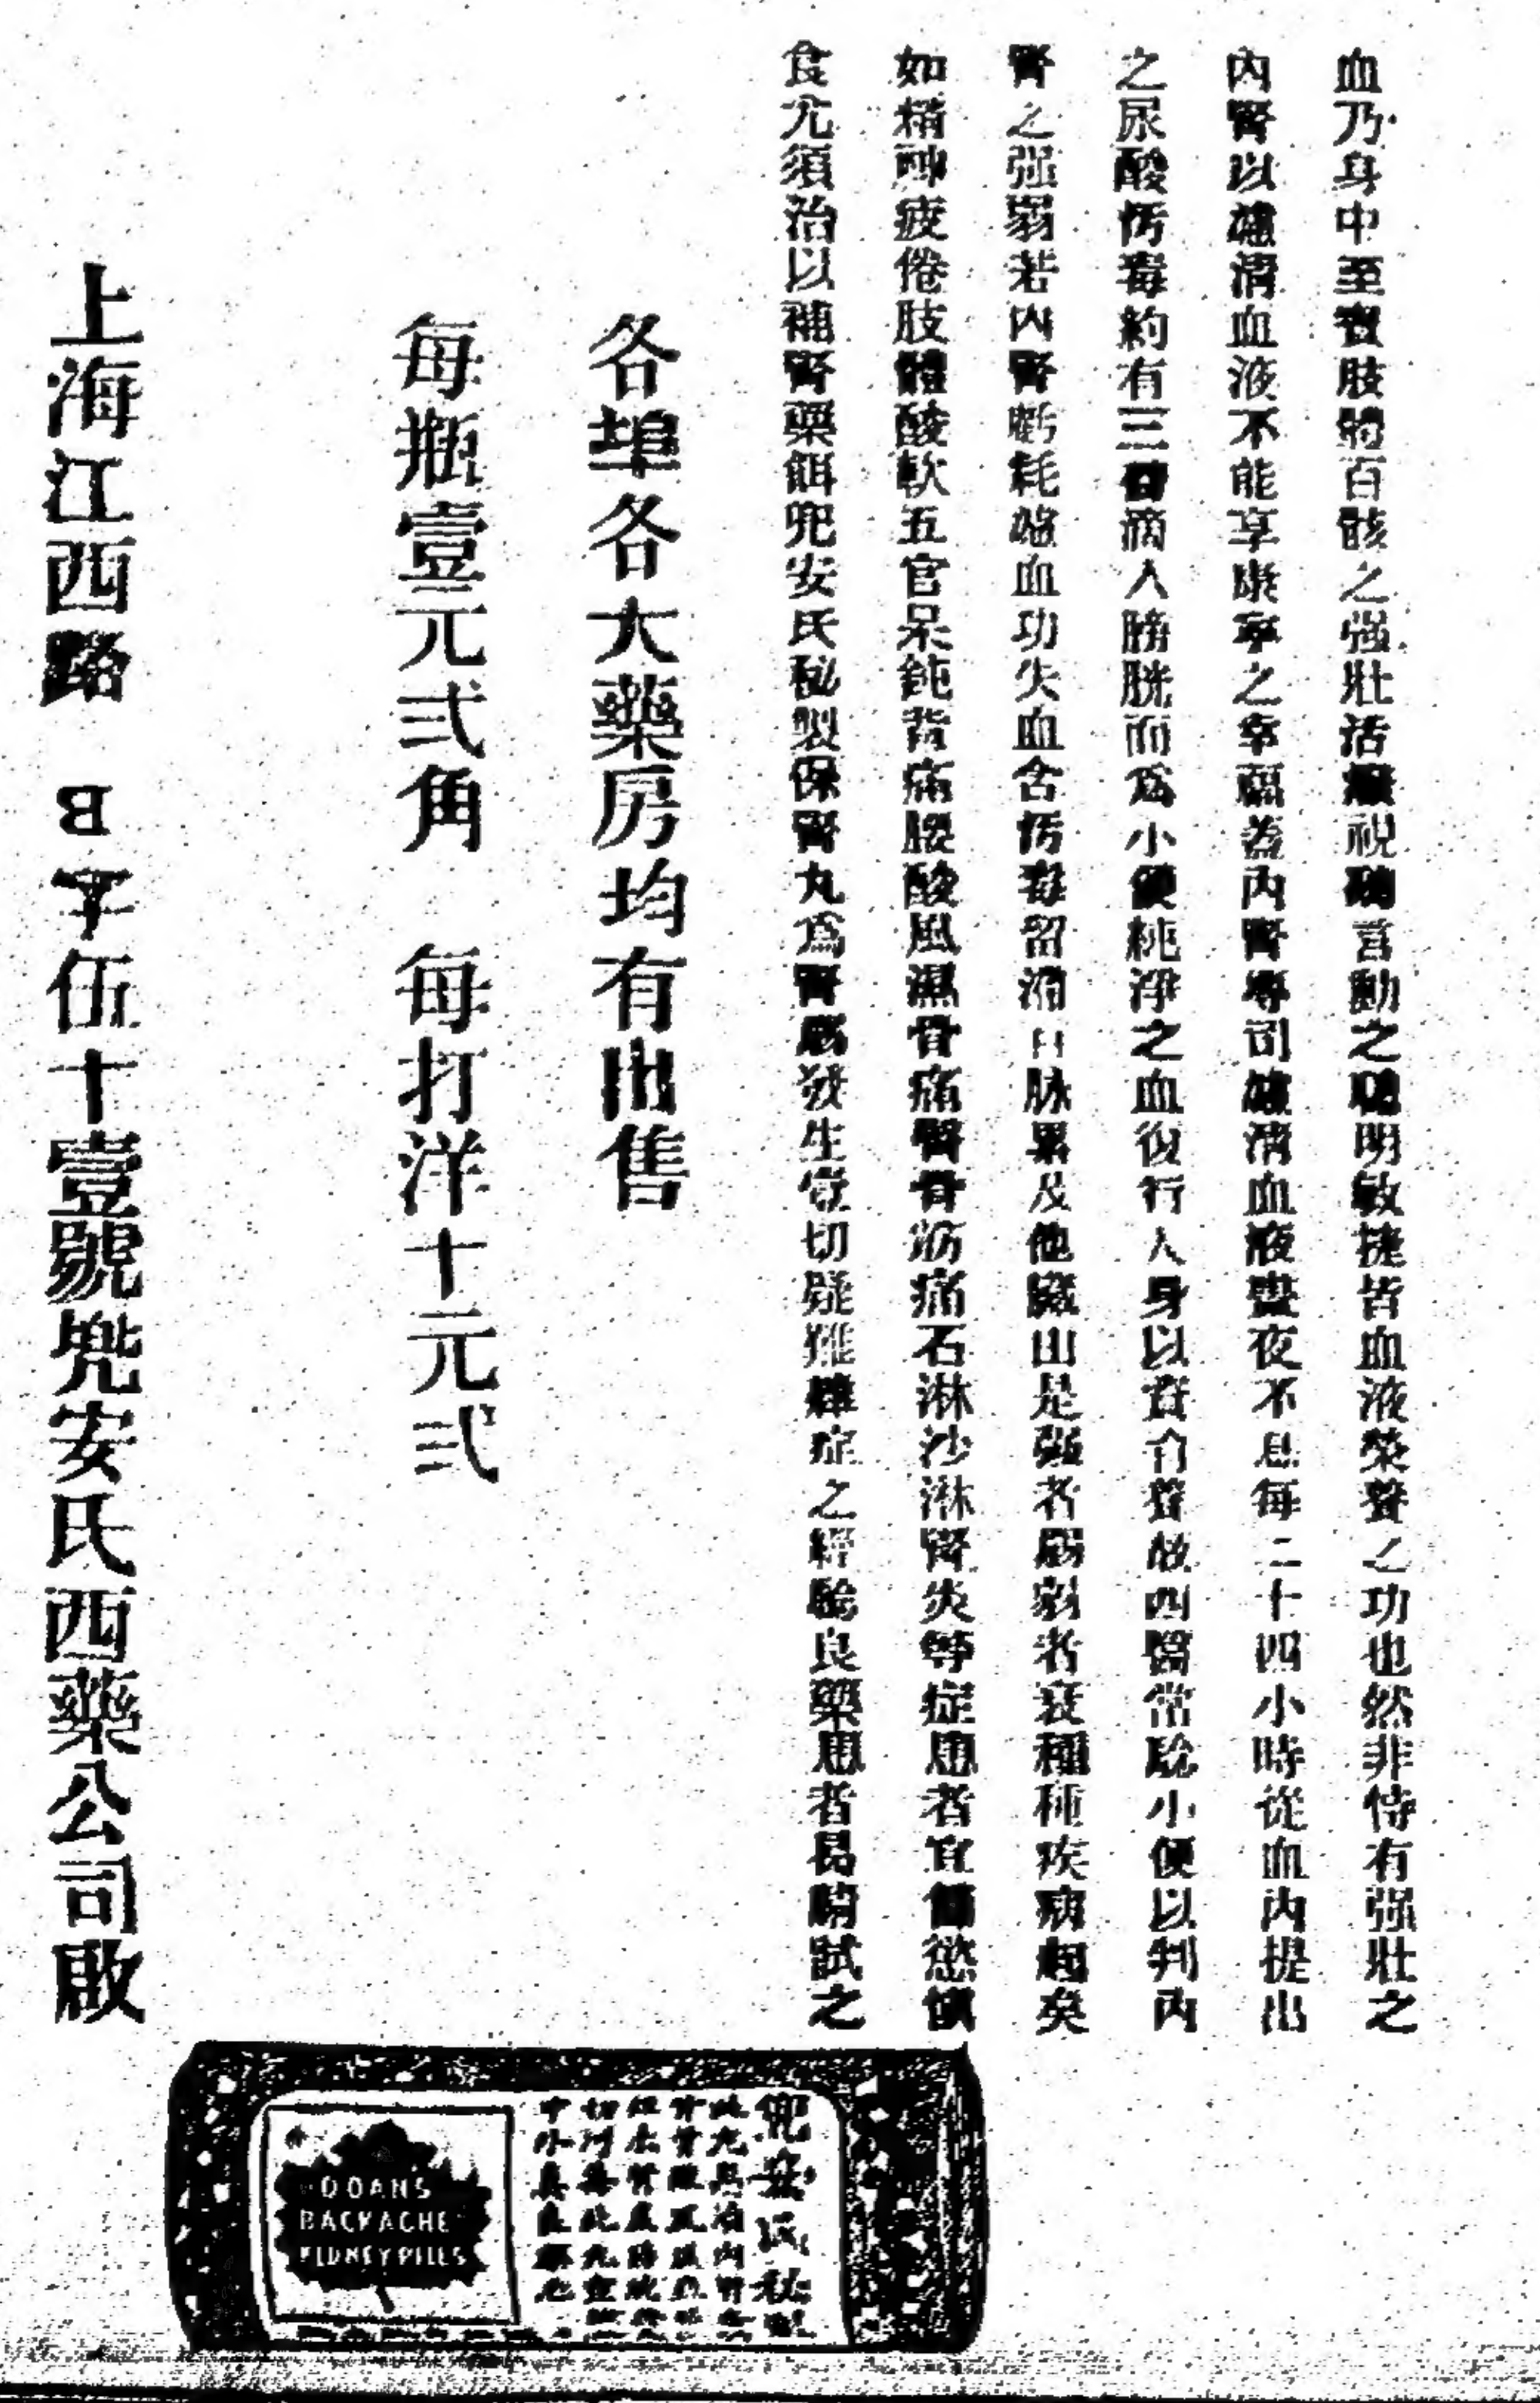 血乃身中至寶肢體百骸之强壯活潑視聽言動之聰明敏捷皆血液榮養之功也然非恃有强壯之
內腎以濾淸血液不能享康寧之幸福蓋內腎專司濾淸血液晝夜不息每二十四小時從血內提出
之尿酸汚毒約有三百滴入膀胱而爲小便純淨之血復行人身以資養故西醫常驗小便以判內
腎之强弱若內腎虧耗濾血功失血含汚毒留滯百脉累及他臟由是强者弱弱者衰種種疾病起矣
如精神疲倦肢體酸軟五官呆鈍背痛腰酸風濕骨痛臀骨筋痛石淋沙淋腎炎等症患者宜節慾愼
食尤須治以補腎藥餌兜安氏秘製保腎丸爲腎虧發生壹切疑難雜症之經驗良藥患者曷嘗試之
各埠各大藥房均有出售
每瓶壹元弍角 每打洋十元弍
上海江西路 B字伍十壹號兜安氏西藥公司啟
兜安氏秘
DOAN'S
BACKACHE
KIDNEY PILLS